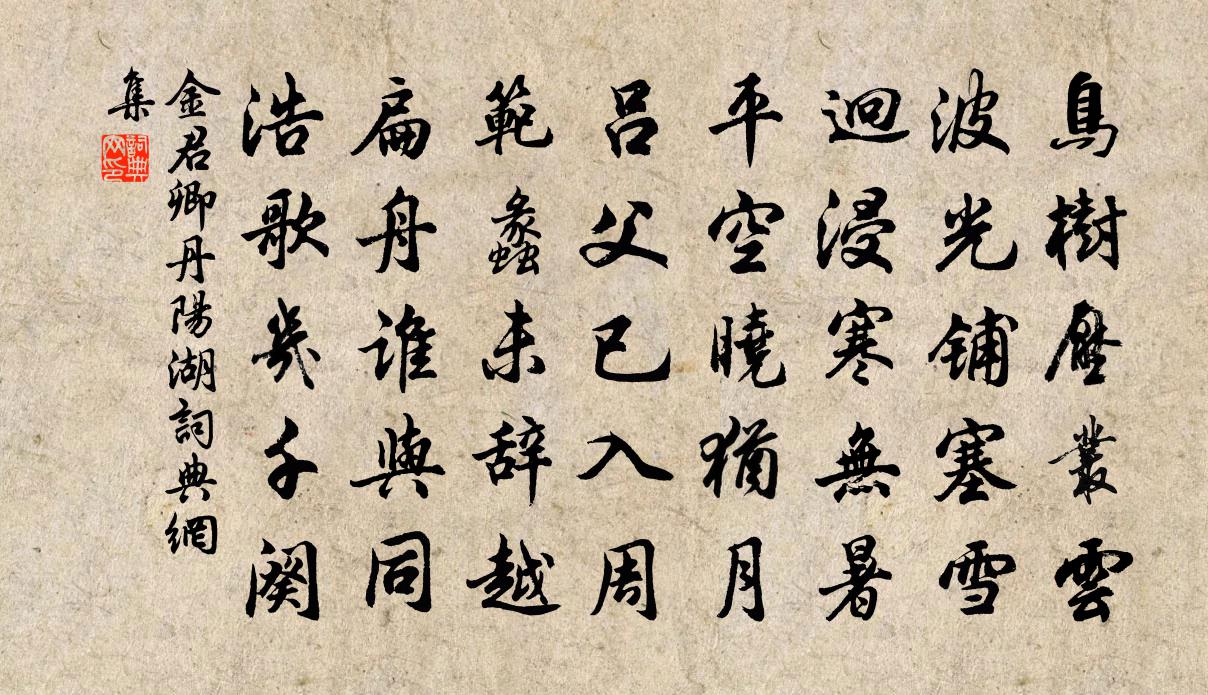 島樹壓叢雲
波光鋪塞雪
迴浸寒無暑
平空曉猶月
呂父已入周
範蠡未辭越
扁舟誰與同
浩歌幾千闋
金君卿丹陽湖詞典網
集
詞典網印